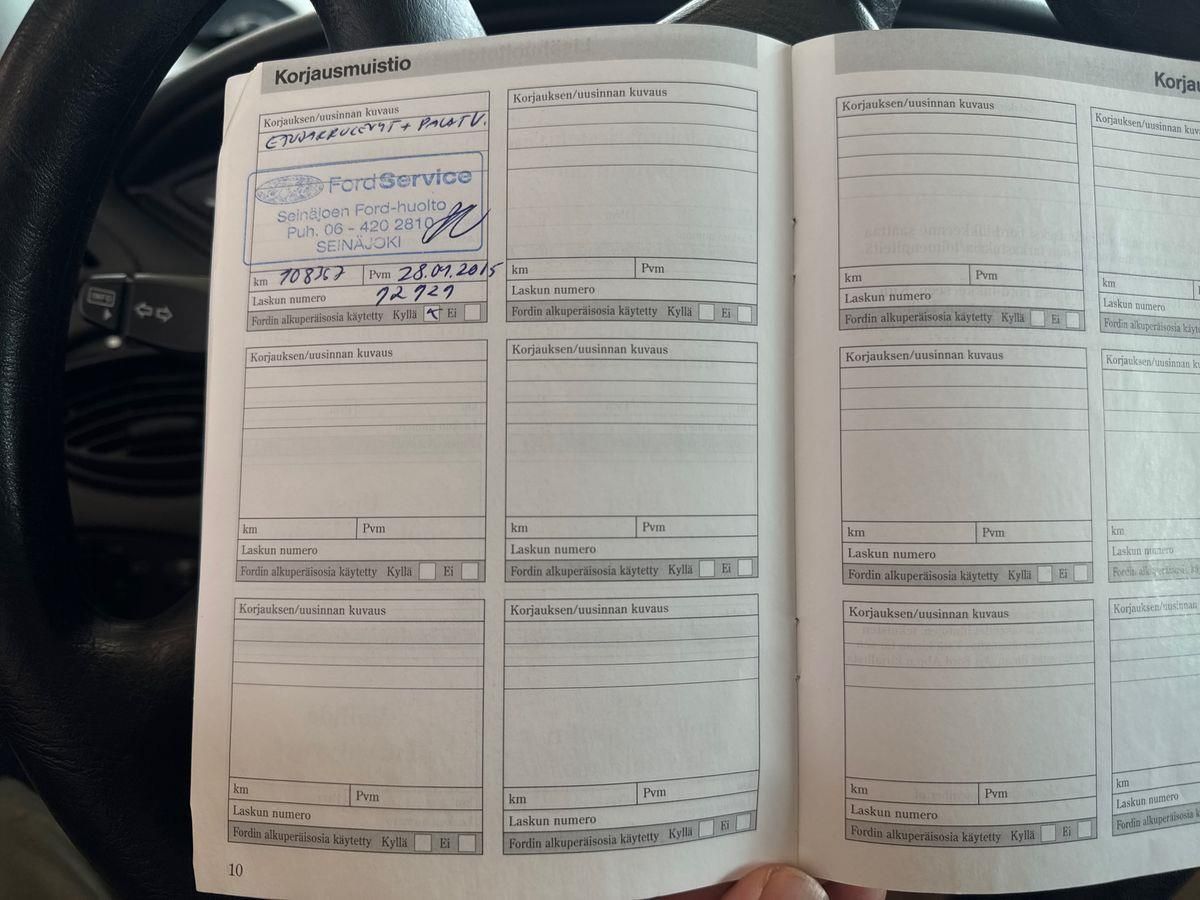 Korjausmuistio
Korjauksen/uusinnan kuvaus
ETUJARRULEVYT + PALAT V.
FordService
Seinäjoen Ford-huolto
Puh. 06 - 420 2810
SEINÄJOKI
km 108367 Pvm 28.01.2015
Laskun numero 12121
Fordin alkuperäisosia käytetty Kyllä Ei
Korjauksen/uusinnan kuvaus
km Pvm
Laskun numero
Fordin alkuperäisosia käytetty Kyllä Ei
Korjauksen/uusinnan kuvaus
km Pvm
Laskun numero
Fordin alkuperäisosia käytetty Kyllä Ei
Korjauksen/uusinnan kuvaus
km Pvm
Laskun numero
Fordin alkuperäisosia käytetty Kyllä Ei
Korjauksen/uusinnan kuvaus
km Pvm
Laskun numero
Fordin alkuperäisosia käytetty Kyllä Ei
Korjauksen/uusinnan kuvaus
km Pvm
Laskun numero
Fordin alkuperäisosia käytetty Kyllä Ei
10
Korjau
Korjauksen/uusinnan kuvaus
km Pvm
Laskun numero
Fordin alkuperäisosia käytetty Kyllä Ei
Korjauksen/uusinnan ku
km
Laskun numero
Fordin alkuperäisosia k
Korjauksen/uusinnan kuvaus
km Pvm
Laskun numero
Fordin alkuperäisosia käytetty Kyllä Ei
Korjauksen/uusinnan ku
km
Laskun numero
Fordin alkuperäisosia kä
Korjauksen/uusinnan kuvaus
km Pvm
Laskun numero
Fordin alkuperäisosia käytetty Kyllä Ei
Korjauksen/uusinnan ku
km
Laskun numero
Fordin alkuperäisosia k
INFO